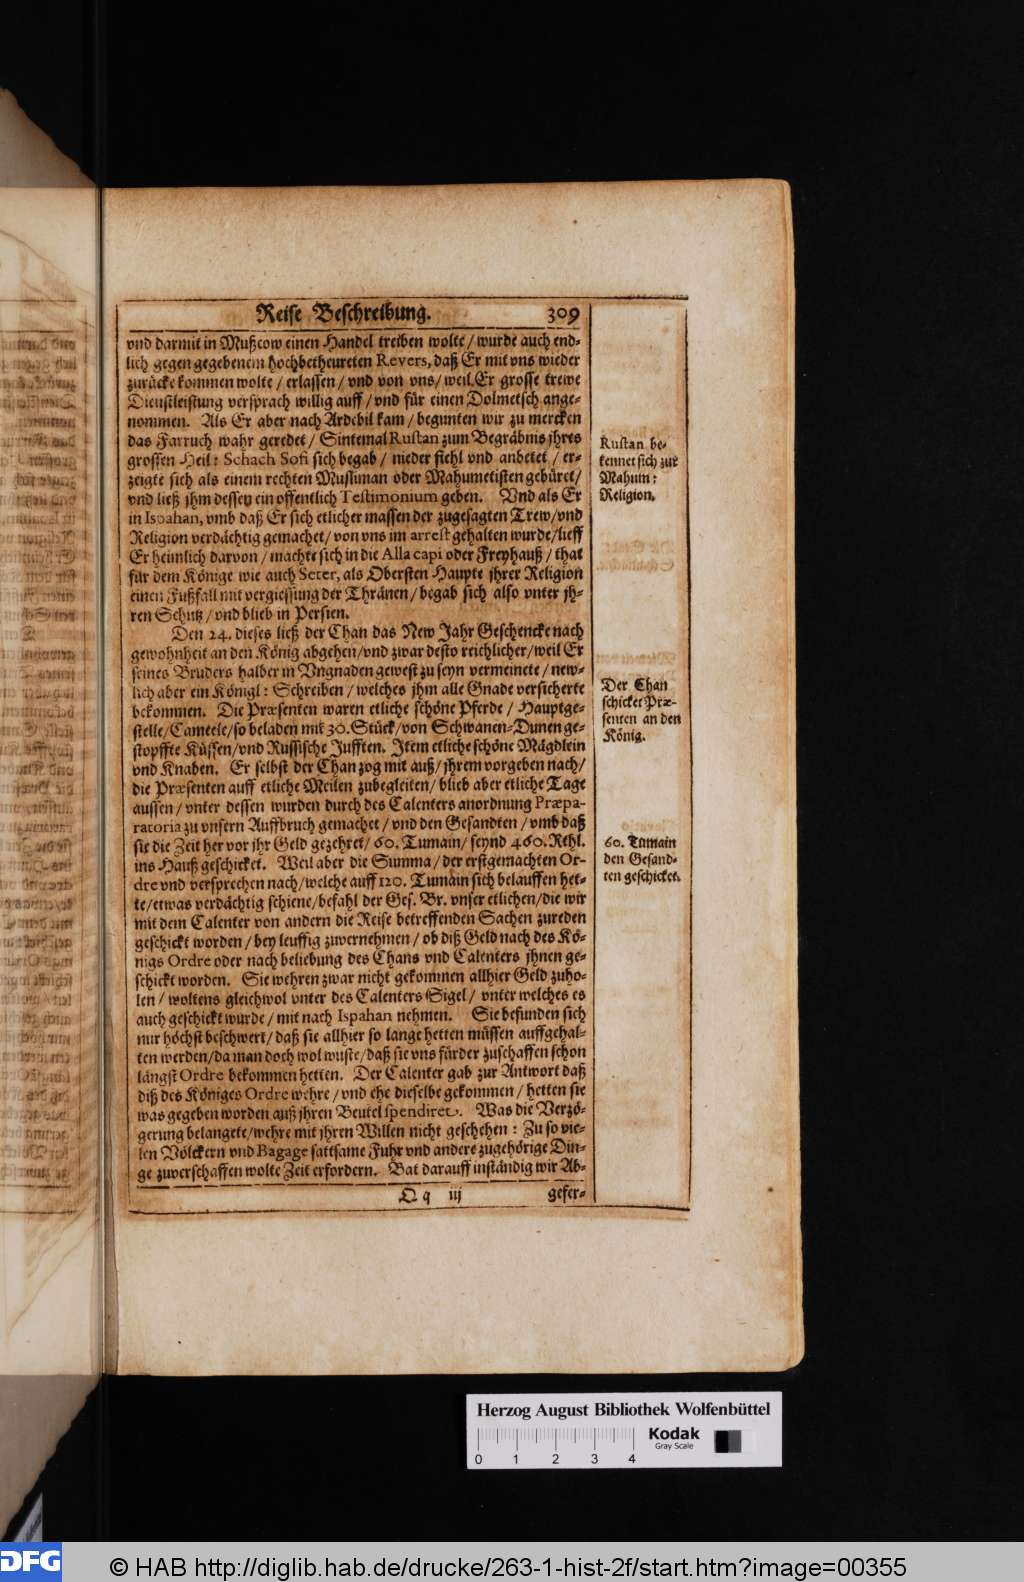 Reise Beschreibung. 309
vnd darmit in Mußcow einen Handel treiben wolte / wurde auch end-
lich gegen gegebenem hochbetheureten Revers, daß Er mit vns wieder
zurücke kommen wolte / erlassen / vnd von vns / weil Er grosse trewe
Dienstleistung versprach willig auff / vnd für einen Dolmetsch ange-
nommen. Als Er aber nach Ardebil kam / begunten wir zu mercken
das Farruch wahr geredet / Sintemal Rustan zum Begräbnis jhres
grossen Heil: Schach Sofi sich begab / nieder fiehl vnd anbetet / er-
zeigte sich als einem rechten Musliman oder Mahumetisten gebüret /
vnd ließ jhm dessen ein offentlich Testimonium geben. Vnd als Er
in Ispahan, vmb daß Er sich etlicher massen der zugesagten Trew / vnd
Religion verdächtig gemachet / von vns im arrest gehalten wurde / lieff
Er heimlich darvon / machte sich in die Alla capi oder Freyhauß / that
für dem Könige wie auch Seter, als Obersten Haupte jhrer Religion
einen Fußfall mit vergiessung der Thränen / begab sich also vnter jh-
ren Schutz / vnd blieb in Persien.
Den 24. dieses ließ der Chan das New Jahr Geschencke nach
gewohnheit an den König abgehen / vnd zwar desto reichlicher / weil Er
seines Bruders halber in Vngnaden gewest zu seyn vermeinete / new-
lich aber ein Königl: Schreiben / welches jhm alle Gnade versicherte
bekommen. Die Præsenten waren etliche schöne Pferde / Hauptge-
stelle / Cameele / so beladen mit 30. Stück / von Schwanen-Dunen ge-
stopffte Küssen / vnd Russische Jufften. Item etliche schöne Mägdlein
vnd Knaben. Er selbst der Chan zog mit auß / jhrem vorgeben nach /
die Præsenten auff etliche Meilen zubegleiten / blieb aber etliche Tage
aussen / vnter dessen wurden durch des Calenters anordnung Præpa-
ratoria zu vnsern Auffbruch gemachet / vnd den Gesandten / vmb daß
sie die Zeit her vor jhr Geld gezehret / 60. Tumain / seynd 460. Rthl.
ins Hauß geschicket. Weil aber die Summa / der erstgemachten Or-
dre vnd versprechen nach / welche auff 120. Tumain sich belauffen het-
te / etwas verdächtig schiene / befahl der Ges. Br. vnser etlichen / die wir
mit dem Calenter von andern die Reise betreffenden Sachen zureden
geschickt worden / bey leuffig zuvernehmen / ob diß Geld nach des Kö-
nigs Ordre oder nach beliebung des Chans vnd Calenters jhnen ge-
schickt worden. Sie wehren zwar nicht gekommen allhier Geld zuho-
len / woltens gleichwol vnter des Calenters Sigel / vnter welches es
auch geschickt wurde / mit nach Ispahan nehmen. Sie befunden sich
nur höchst beschwert / daß sie allhier so lange hetten müssen auffgehal-
ten werden / da man doch wol wuste / daß sie vns fürder zuschaffen schon
längst Ordre bekommen hetten. Der Calenter gab zur Antwort daß
diß des Königes Ordre wehre / vnd ehe dieselbe gekommen / hetten sie
was gegeben worden auß jhren Beutel spendiret. Was die Verzö-
gerung belangete / wehre mit jhren Willen nicht geschehen: Zu so vie-
len Völckern vnd Bagage sattsame Fuhr vnd andere zugehörige Din-
ge zuverschaffen wolte Zeit erfordern. Bat darauff inständig wir Ab-
Q q iij gefer-
Rustan be-
kennet sich zur
Mahum:
Religion.
Der Chan
schicket Præ-
senten an den
König.
60. Tumain
den Gesand-
ten geschicket.
Herzog August Bibliothek Wolfenbüttel
Kodak
Gray Scale
0 1 2 3 4
DFG
© HAB http://diglib.hab.de/drucke/263-1-hist-2f/start.htm?image=00355